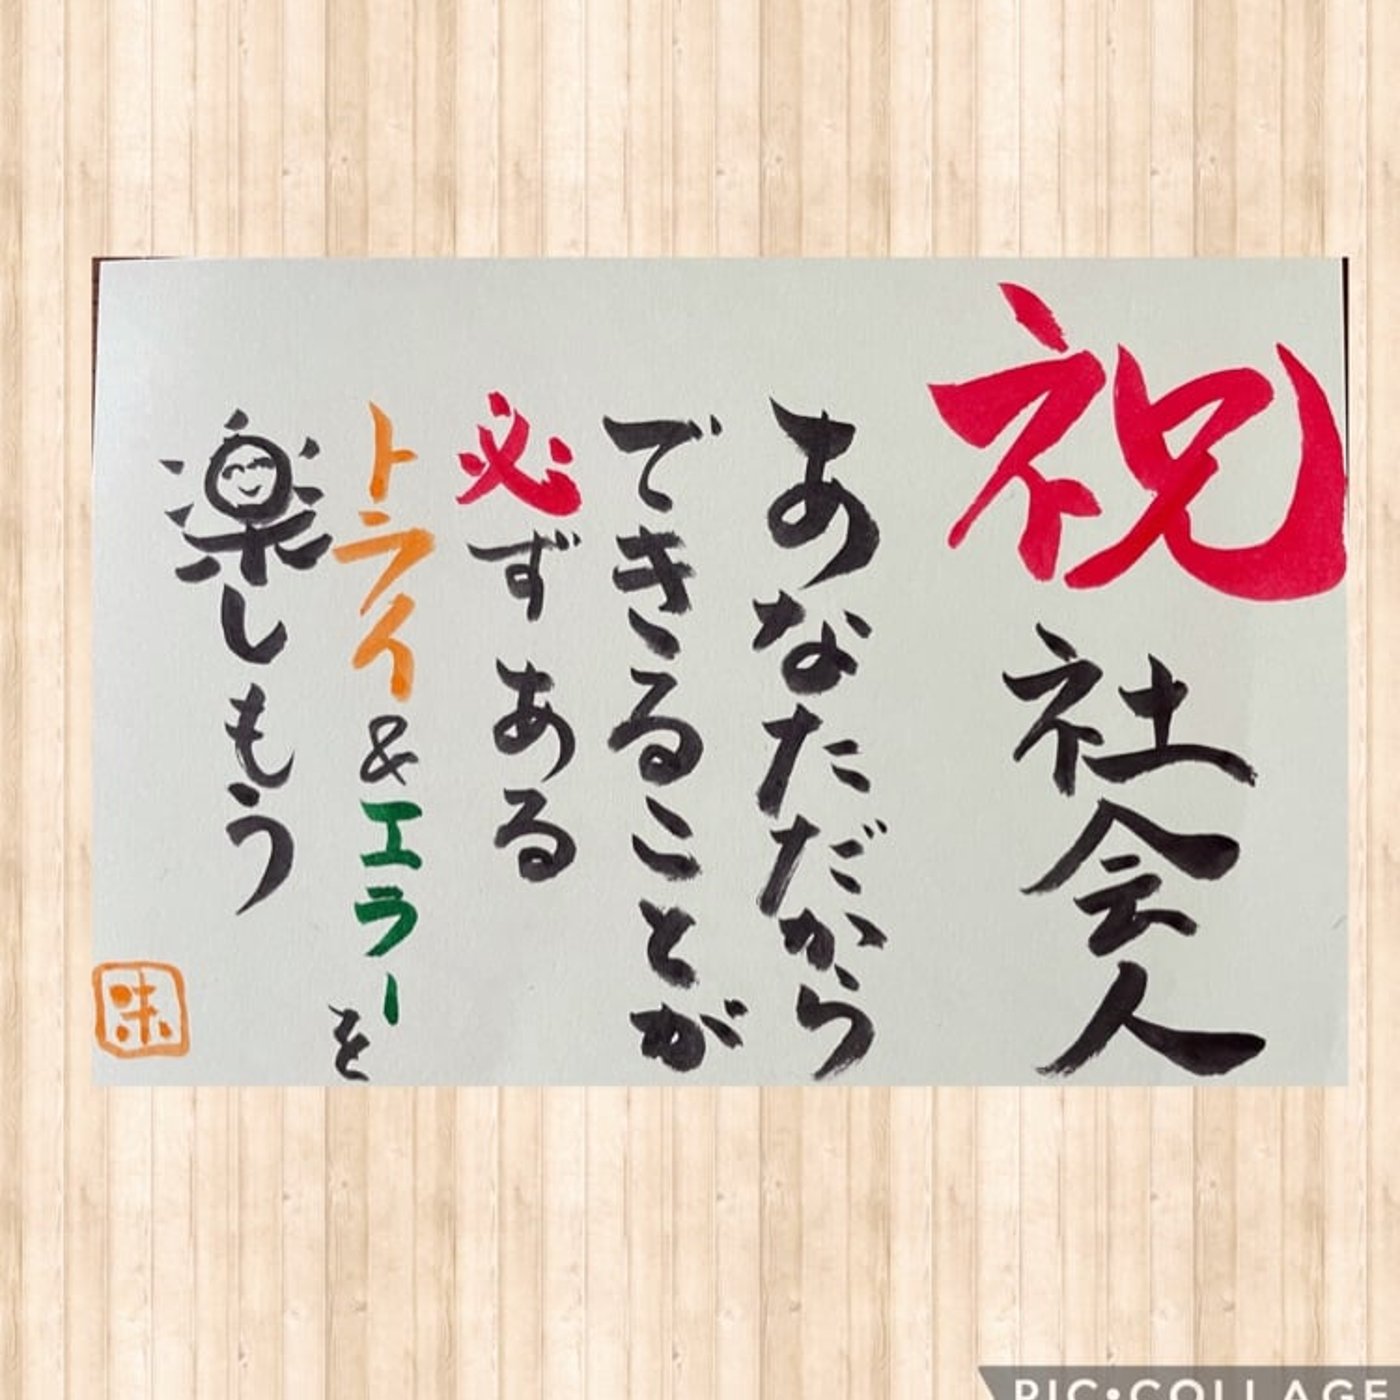 祝 社会人
あなただから
できることが
必ずある
トライ&エラーを
楽しもう
PIC•COLLAGE